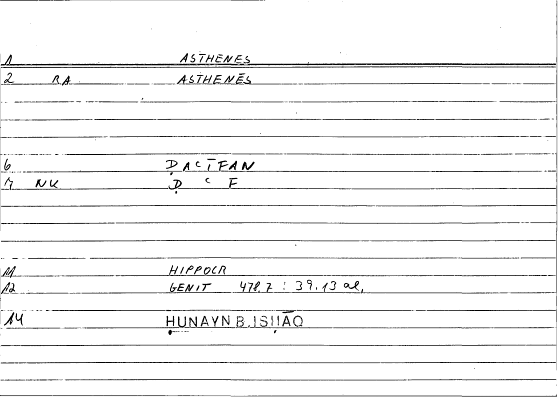 1 ASTHENES
2 RA ASTHENĒS
6 ḌAʿĪFAN
7 NK Ḍ ʿ F
11 HIPPOCR
12 GENIT 478.7 : 39.13 al.
14 ḤUNAYN B. ISḤĀQ